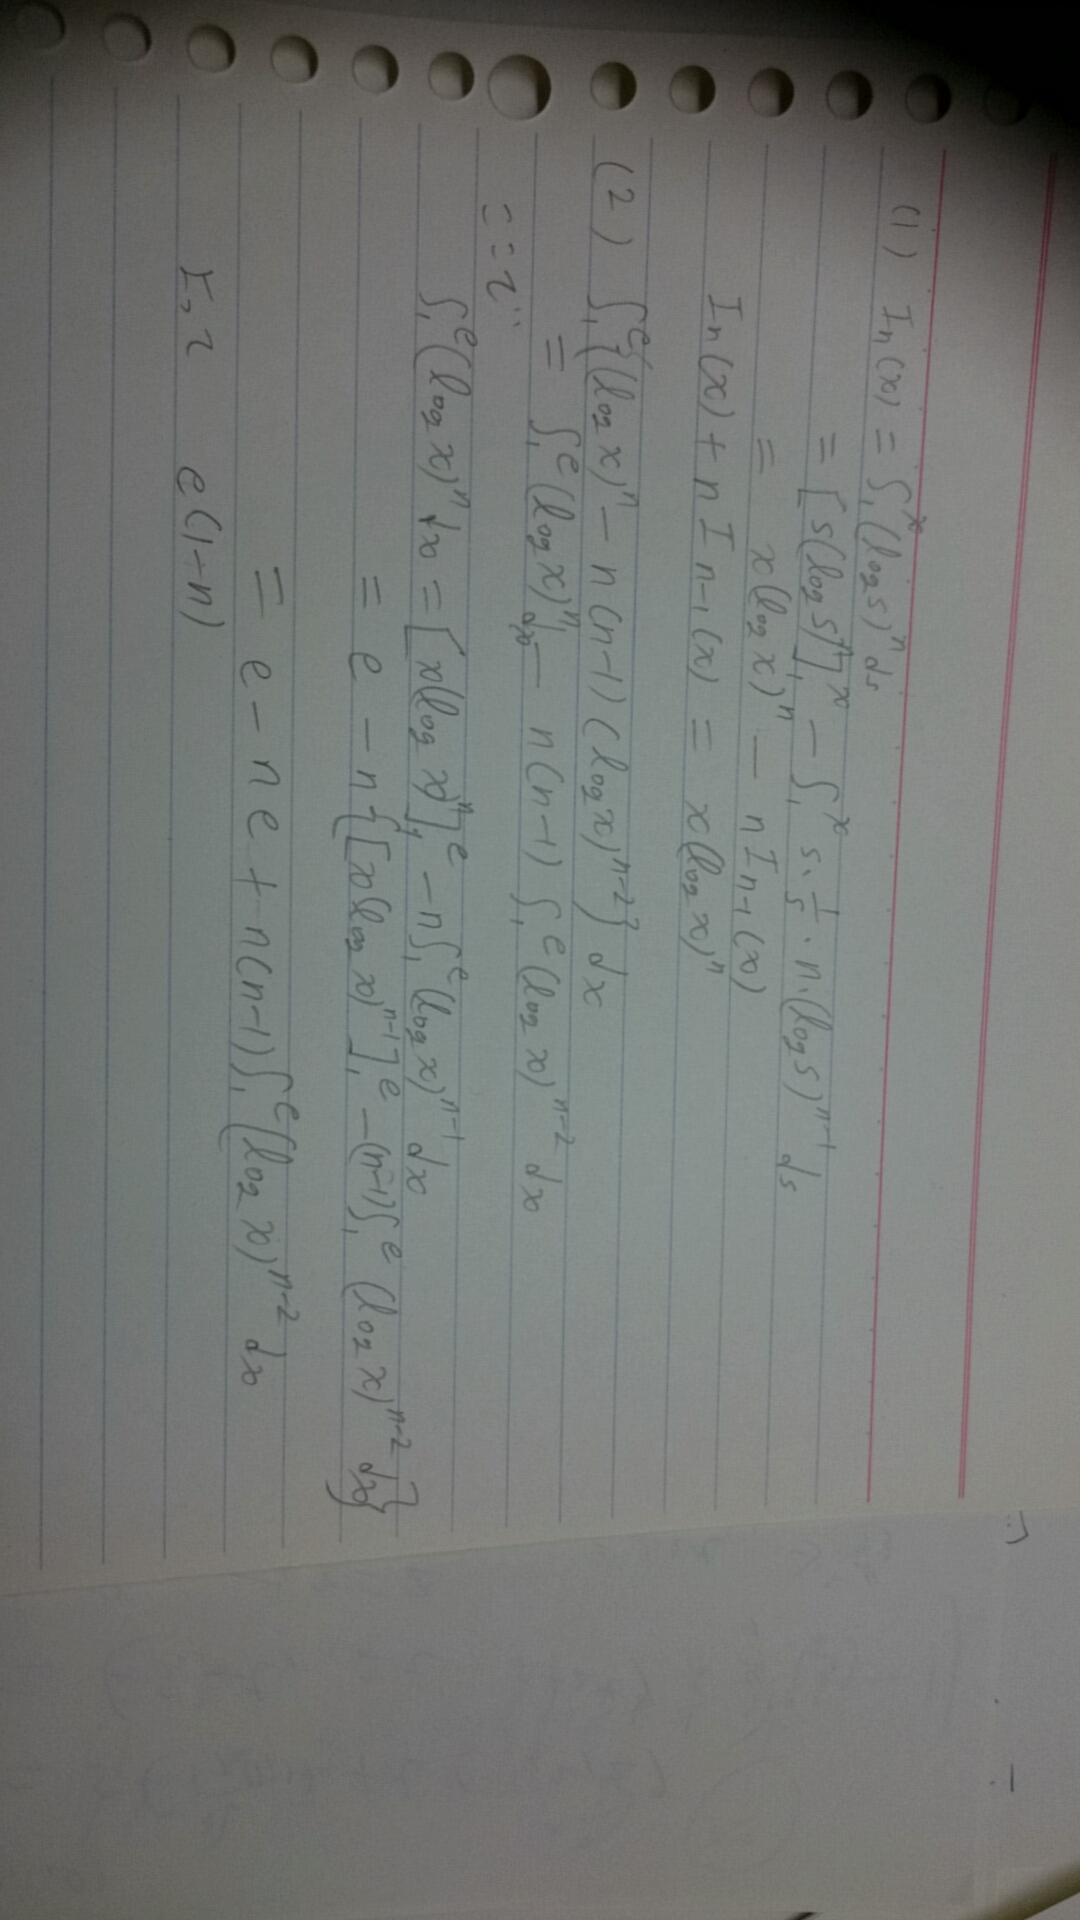 (1) In(x) = ∫₁ˣ (log s)ⁿ ds
= [s(log s)ⁿ]₁ˣ - ∫₁ˣ s · 1/s · n · (log s)ⁿ⁻¹ ds
= x(log x)ⁿ - n In-1(x)
In(x) + n In-1(x) = x(log x)ⁿ
(2) ∫₁ᵉ {(log x)ⁿ - n(n-1)(log x)ⁿ⁻²} dx
= ∫₁ᵉ (log x)ⁿ dx - n(n-1) ∫₁ᵉ (log x)ⁿ⁻² dx
ここで
∫₁ᵉ (log x)ⁿ dx = [x(log x)ⁿ]₁ᵉ - n∫₁ᵉ (log x)ⁿ⁻¹ dx
= e - n{[x(log x)ⁿ⁻¹]₁ᵉ - (n-1)∫₁ᵉ (log x)ⁿ⁻² dx}
= e - ne + n(n-1)∫₁ᵉ (log x)ⁿ⁻² dx
よって e(1-n)